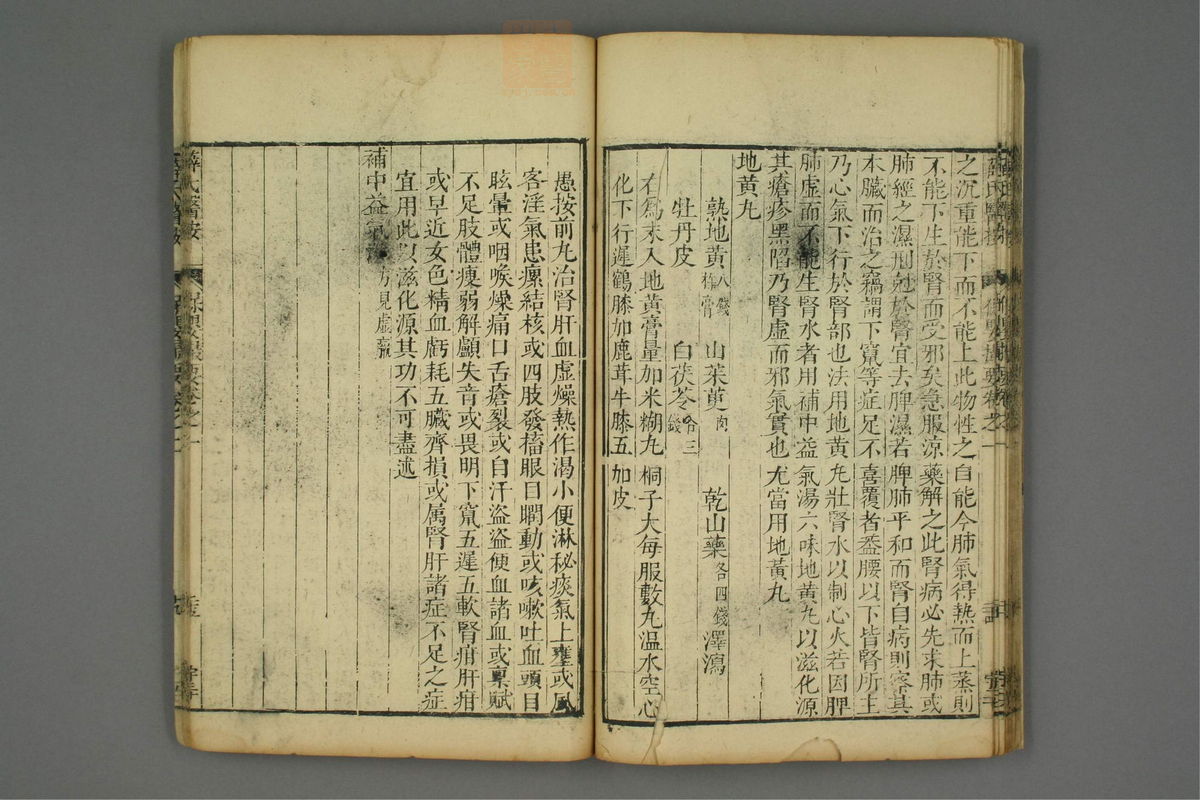 之沉重能下而不能上此物性之自能今肺氣得熱而上蒸則
不能下生於腎而受邪矣急服涼藥解之此腎病必先求肺或
肺經之濕刑尅於腎宜去脾濕若脾肺平和而腎自病則察其
本臟而治之竊謂下竄等症足不喜覆者蓋腰以下皆腎所主
乃心氣下行於腎部也法用地黃丸壯腎水以制心火若因脾
肺虛而不能生腎水者用補中益氣湯六味地黃丸以滋化源
其瘡疹黑陷乃腎虛而邪氣實也尤當用地黃丸
地黃丸
熟地黃八錢杵膏 山茱萸肉 乾山藥各四錢 澤瀉
牡丹皮 白茯苓各三錢
右為末入地黃膏量加米糊丸桐子大每服數丸温水空心
化下行遲鶴膝加鹿茸牛膝五加皮
愚按前丸治腎肝血虛燥熱作渴小便淋秘痰氣上壅或風
客淫氣患瘰結核或四肢發搐眼目瞤動或咳嗽吐血頭目
眩暈或咽喉燥痛口舌瘡裂或自汗盜盜便血諸血或稟賦
不足肢體瘦弱解顱失音或畏明下竄五遲五軟腎疳肝疳
或早近女色精血虧耗五臟齊損或属腎肝諸症不足之症
宜用此以滋化源其功不可盡述
補中益氣湯方見虛羸
薛氏醫按 保嬰撮要卷之一